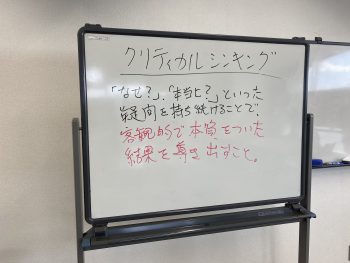 クリティカルシンキング
「なぜ?」、「本当に?」といった
疑問を持ち続けることで、
客観的で本質をついた
結果を導き出すこと。